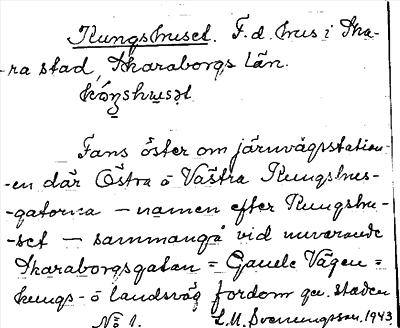 Kungshuset. F.d. hus i Ska-
-ra stad, Skaraborgs län.
kóŋshusət
Fans öster om järnvägsstation-
-en där Östra o Västra Kungshus-
-gatorna — namen efter Kungshu-
-set — sammangå vid nuvarande
Skaraborgsgatan = Gamle Vägen =
kungs- o landsväg fordom gm. staden
No 1. L.M. Svenungsson. 1943